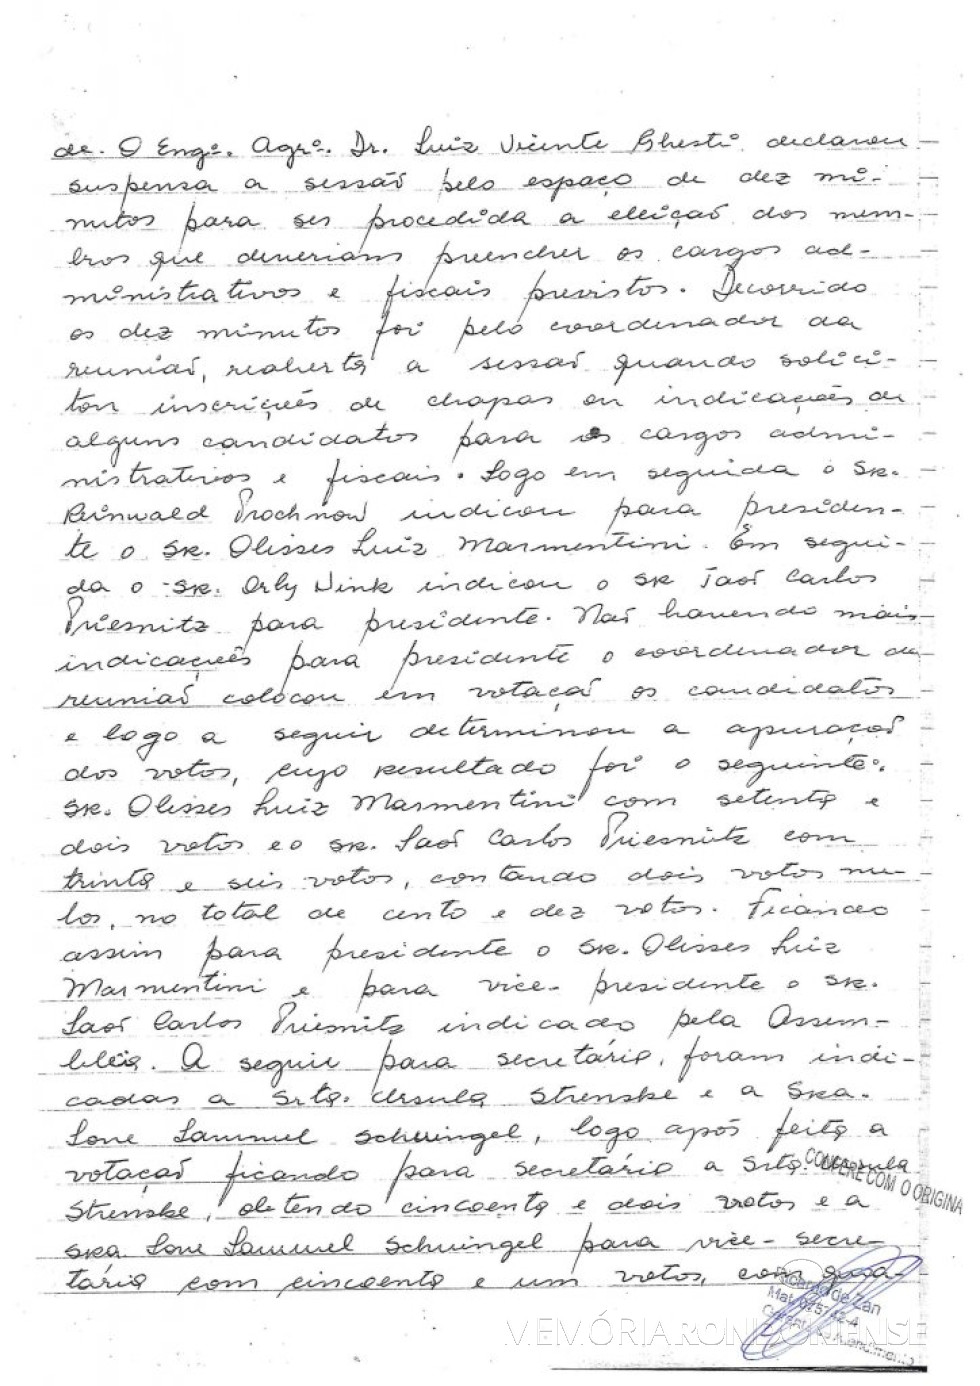 de. O Engº. Agrº. Dr. Luiz Vicente Ghesti declarou
suspensa a sessão pelo espaço de dez mi-
nutos para ser procedida a eleição dos mem-
bros que deveriam preencher os cargos ad-
ministrativos e fiscais previstos. Decorrido
os dez minutos foi pelo coordenador da
reunião, reaberta a sessão quando solici-
tou inscrições de chapas ou indicações de
alguns candidatos para os cargos admi-
nistrativos e fiscais. Logo em seguida o Sr.
Reinwald Prochnow indicou para presiden-
te o Sr. Olisses Luiz Marmentini. Em segui-
da o Sr. Orly Wink indicou o Sr João Carlos
Priesnitz para presidente. Não havendo mais
indicações para presidente o coordenador da
reunião colocou em votação os candidatos
e logo a seguir determinou a apuração
dos votos, cujo resultado foi o seguinte:
Sr. Olisses Luiz Marmentini com setenta e
dois votos e o Sr. João Carlos Priesnitz com
trinta e seis votos, contando dois votos nu-
los, no total de cento e dez votos. Ficando
assim para presidente o Sr. Olisses Luiz
Marmentini e para vice-presidente o Sr.
João Carlos Priesnitz indicado pela Assem-
bléia. A seguir para secretária, foram indi-
cadas a Srta. Ursula Strenske e a Sra.
Lone Lammel Schwingel, logo após feita a
votação ficando para secretário a Srta. Ursula
Strenske, obtendo cincoenta e dois votos e a
Sra. Lone Lammel Schwingel para vice-secre-
tária com cincoenta e um votos, com
CONFERE COM O ORIGINA
Ricardo de Zan
MEMÓRIA RONDONENSE